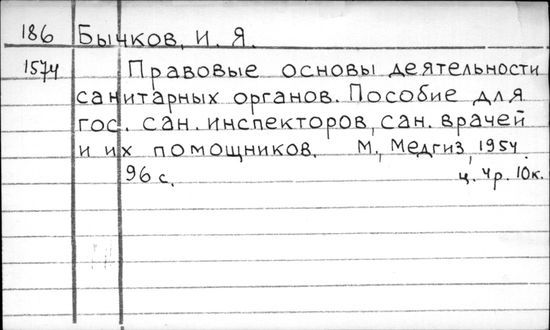 186 Бычков, И. Я.
1574 Правовые основы деятельности
санитарных органов. Пособие для
гос. сан. инспекторов, сан. врачей
и их помощников. М., Медгиз, 1954.
96 с. ц. 4р. 10к.